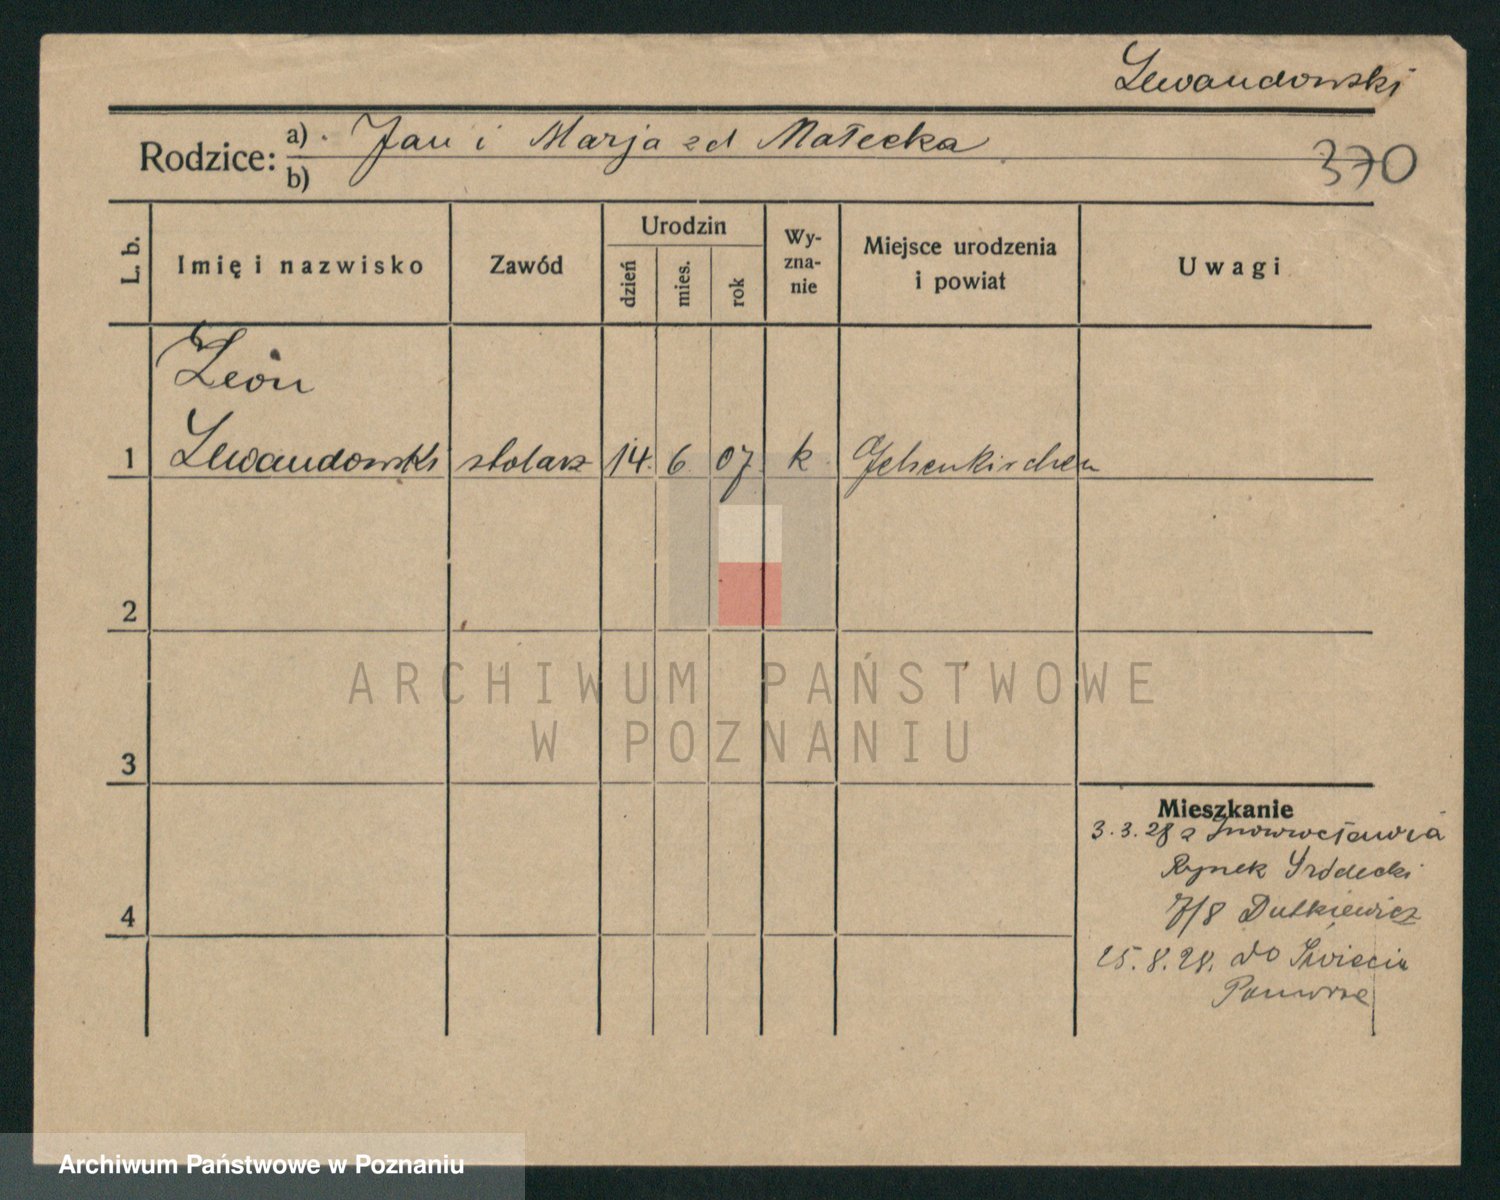 Lewandowski
Rodzice: a) Jan i Marja zd Małecka
b)
370
L. b.
Imię i nazwisko
Zawód
Urodzin
dzień
mies.
rok
Wy-
zna-
nie
Miejsce urodzenia
i powiat
Uwagi
Leon
1 Lewandowski stolarz 14. 6 07 k Gelsenkirchen
2
3
4
Mieszkanie
3.3.28 z Inowrocławia
Rynek Śródecki
7/8 Dutkiewicz
25.8.28. do Świecia
Pomorze
ARCHIWUM PAŃSTWOWE
W POZNANIU
Archiwum Państwowe w Poznaniu